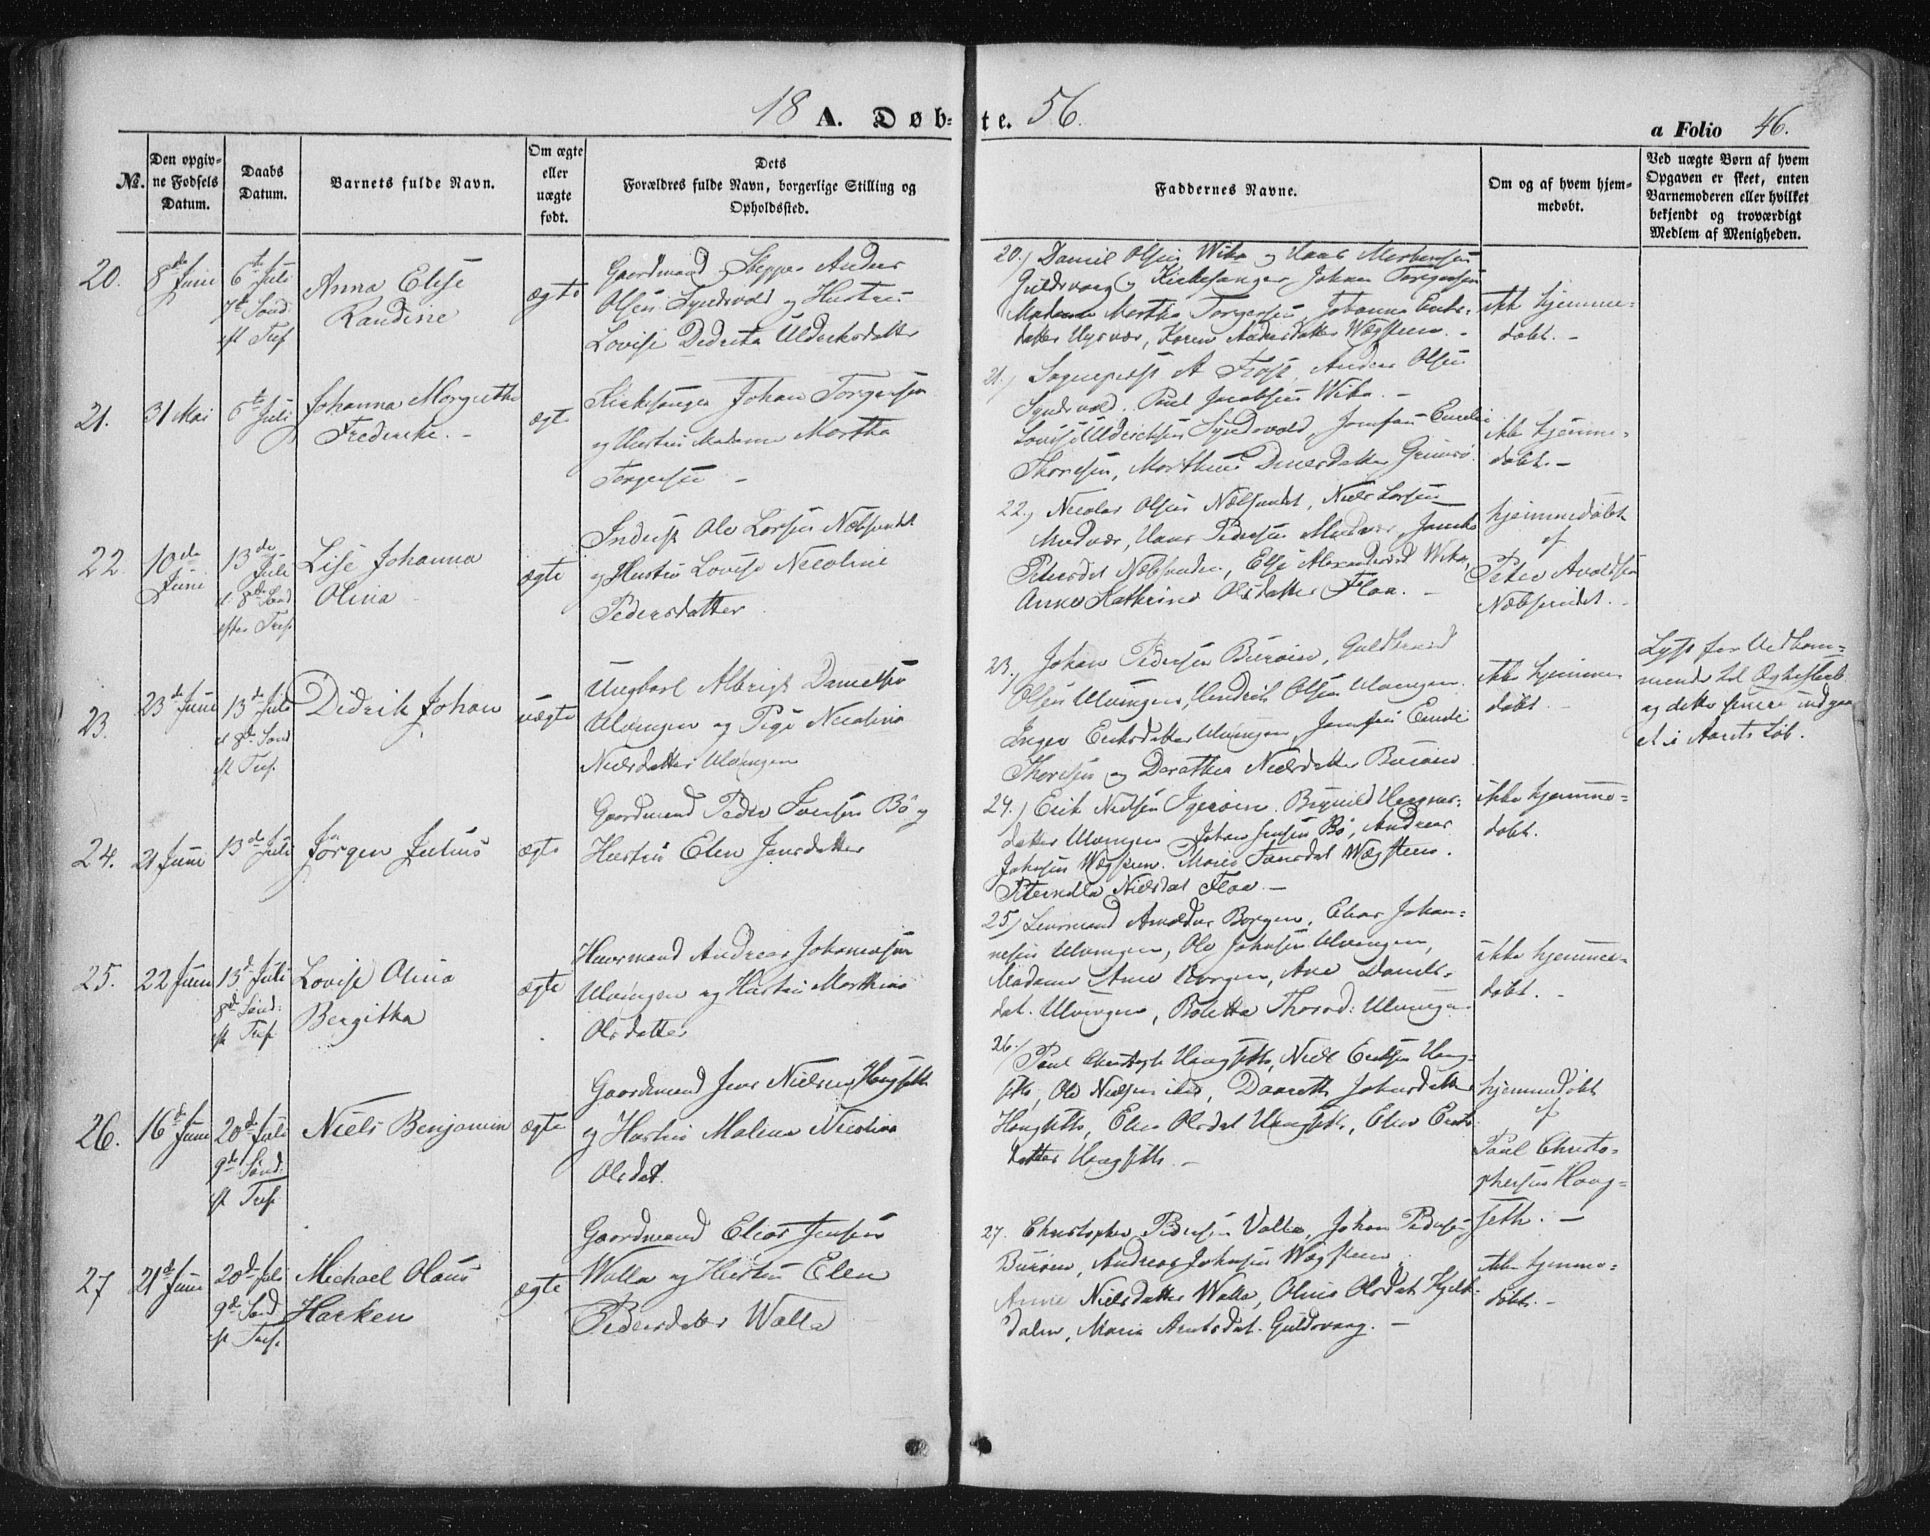 18 A. Døb-te. 56.
a Folio 46.
№.
Den opgiv-
ne Fødsels
Datum.
Daabs
Datum.
Barnets fulde Navn.
Om ægte
eller
uægte
født.
Dets
Forældres fulde Navn, borgerlige Stilling og
Opholdssted.
Faddernes Navne.
Om og af hvem hjem-
medøbt.
Ved uægte Børn af hvem
Opgaven er skeet, enten
Barnemoderen eller hvilket
bekjendt og troværdigt
Medlem af Menigheden.
20.
8de Juni
6te Juli
7de Sønd
eft Tref
Anna Elise
Randine
ægte
Gaardmand Skipper Anders
Olsen Syndsvold og Hustru
Lovise Didrika Ulderksdatter
20.) Daniel Olsen Wika og Hans Mortensen
Guldsvaag Kirkesanger Johan Torgersen
Madame Martha Torgersen, Johanna Eriks-
datter Uysvær, Karen Andersdatter Wægsteen. -
ikke hjemme-
døbt. -
21.
31 Mai
6te Juli
Johanna Margrethe
Frederike. -
ægte
Kirkesanger Johan Torgersen
og Hustru Madame Martha
Torgersen -
21.) Sognepræst A Frost, Anders Olsen
Syndsvold. Paul Jacobsen Wika. -
Lovise Uldericksen Syndsvold, Jomfru Emelie
Thoresen, Marthine Danielsdatter
ikke hjemme-
døbt. -
22.
10de
Juni
13de
Juli
d 8de Sønd
efter Tref.
Lise Johanna
Olina
ægte
Inderst Ole Larsen Næbsundet
og Hustru Lovise Nicoline
Pedersdatter
22.) Nicolai Olsen Næbsundet, Niels Larsen
Mudvær, Hans Pedersen Mudvær,
Petersdat Næbsundet, Else Alexandersdat Wika,
Anne Kathrine Olsdatter Floa. -
hjemmedøbt
af
Peder Arvoldsen
Næbsundet. -
23.
23de Juni
13de Juli
d 8de Sønd
eft Tref.
Didrik Johan
uægte
Ungkarl Albrigt Danielsen
Ulvingen og Pige Nicolina
Nielsdatter Ulvingen
23.) Johan Pedersen Burøien, Guldbrand
Olsen Ulvingen, Hendrik Olsen Ulvingen.
Inger Eriksdatter Ulvingen, Jomfru Emelie
Thoresen og Dorathea Nielsdatter Burøien
ikke hjemme-
døbt. -
Lyst for Vedkom-
mende til Ægteskab
og dette senere indgaa-
et i Aarets Løb.
24.
21 Juni
13de Juli
Jørgen Julius
ægte
Gaardmand Peder Iversen Bø og
Hustru Elen Jensdatter
24.) Erik Nielsen Igerøien. Brynild
datter Ulvingen Johan Jensen Bø, Andreas
Johnsen Wægsteen. Maria Hansdat Wægsteen.
Peternella Nielsdat Floa -
ikke hjemme-
døbt.
25.
22 Juni
13de Juli
8de Sønd:
eft Tref.
Lovise Olina
Bergitha
ægte
Huusmand Andreas Johannesen
Ulvingen og Hustru Marthine
Olsdatter
25) Lensmand Arnoldus Borgen, Elias Johan-
nesen Ulvingen, Ole Johnsen Ulvingen,
Madame Ane Borgen, Ane Daniels-
dat. Ulvingen, Boletta Thorsd: Ulvingen
ikke hjemme-
døbt. -
26.
16de Juni
20de Juli
9de Sønd:
eft Tref
Niels Benjamin
ægte
Gaardmand Jens Nielsen Haugseth
og Hustru Malene Nicolina
Olsdat.
26.) Paul Christoph Haugseth, Niels Eriksen Haug-
seth, Ole Nielsen ibid, Daareth Johnsdatter
Haugseth, Elen Olsdat Haugseth, Elen Eriks
datter Haugseth. -
hjemmedøbt
af
Paul Christo-
phersen Haug-
seth. -
27
21de Juni
20de Juli
9de Sønd
eft Tref.
Michael Olaus
Harken
ægte
Gaardmand Elias Jensen
Walla og Hustru Elen
Pedersdatter Walla
27. Christopher Pedersen Valla, Johan Pedersen
Burøien, Andreas Johnsen Wægsteen
Anne Nielsdatter Walla, Olina Olsdat
dalen, Maria Arntsdat. Guldsvaag. -
ikke hjemme-
døbt. -